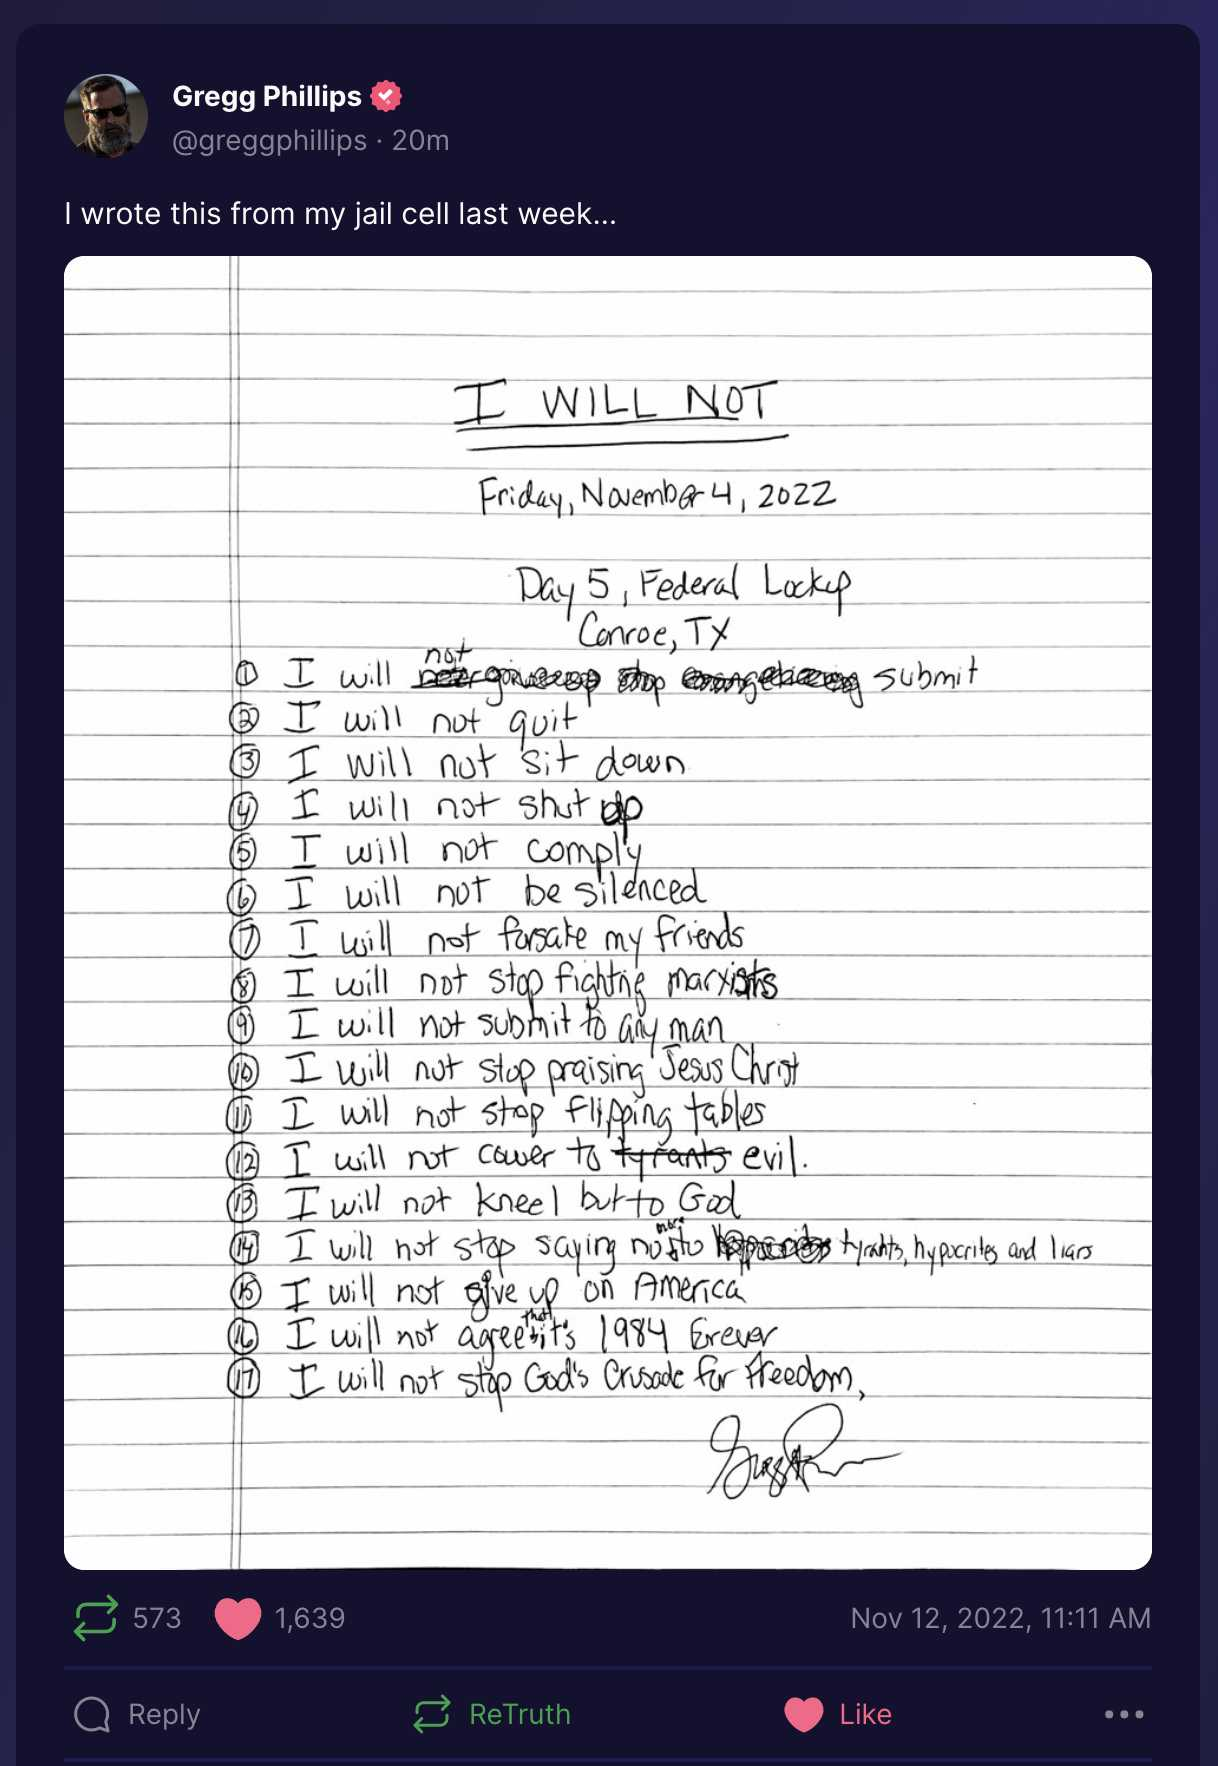 Gregg Phillips
@greggphillips · 20m
I wrote this from my jail cell last week...
I WILL NOT
Friday, November 4, 2022
Day 5, Federal Lockup
Conroe, TX
not
① I will submit
② I will not quit
③ I will not sit down
④ I will not shut up
⑤ I will not comply
⑥ I will not be silenced
⑦ I will not forsake my friends
⑧ I will not stop fighting marxists
⑨ I will not submit to any man
⑩ I will not stop praising Jesus Christ
⑪ I will not stop flipping tables
⑫ I will not cower to tyrants evil.
⑬ I will not kneel but to God
more
⑭ I will not stop saying no to tyrants, hypocrites and liars
⑮ I will not give up on America
that
⑯ I will not agree it's 1984 Erever
⑰ I will not stop God's Crusade for freedom,
573 1,639 Nov 12, 2022, 11:11 AM
Reply ReTruth Like